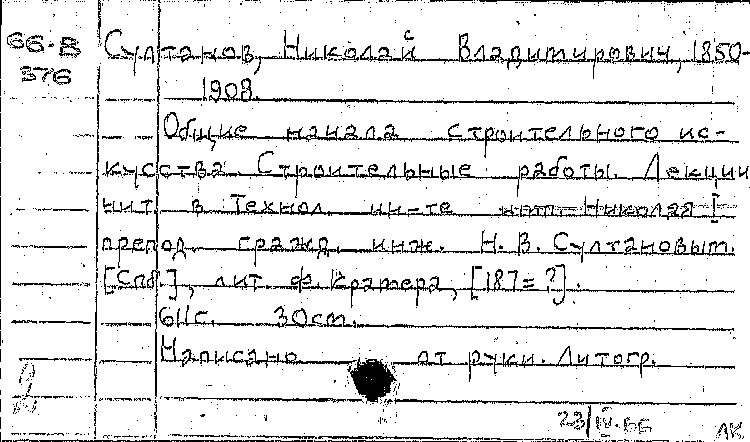 66-В
376
Султанов, Николай Владимирович, 1850-
1908.
Общие начала строительного ис-
кусства. Строительные работы. Лекции
чит. в Технол. ин-те имп. Николая I
препод. гражд. инж. Н. В. Султановым.
[Спб.], лит. Ф. Кремера, [187=?].
611с. 30cm.
Написано от руки. Литогр.
23/IV-66 AK